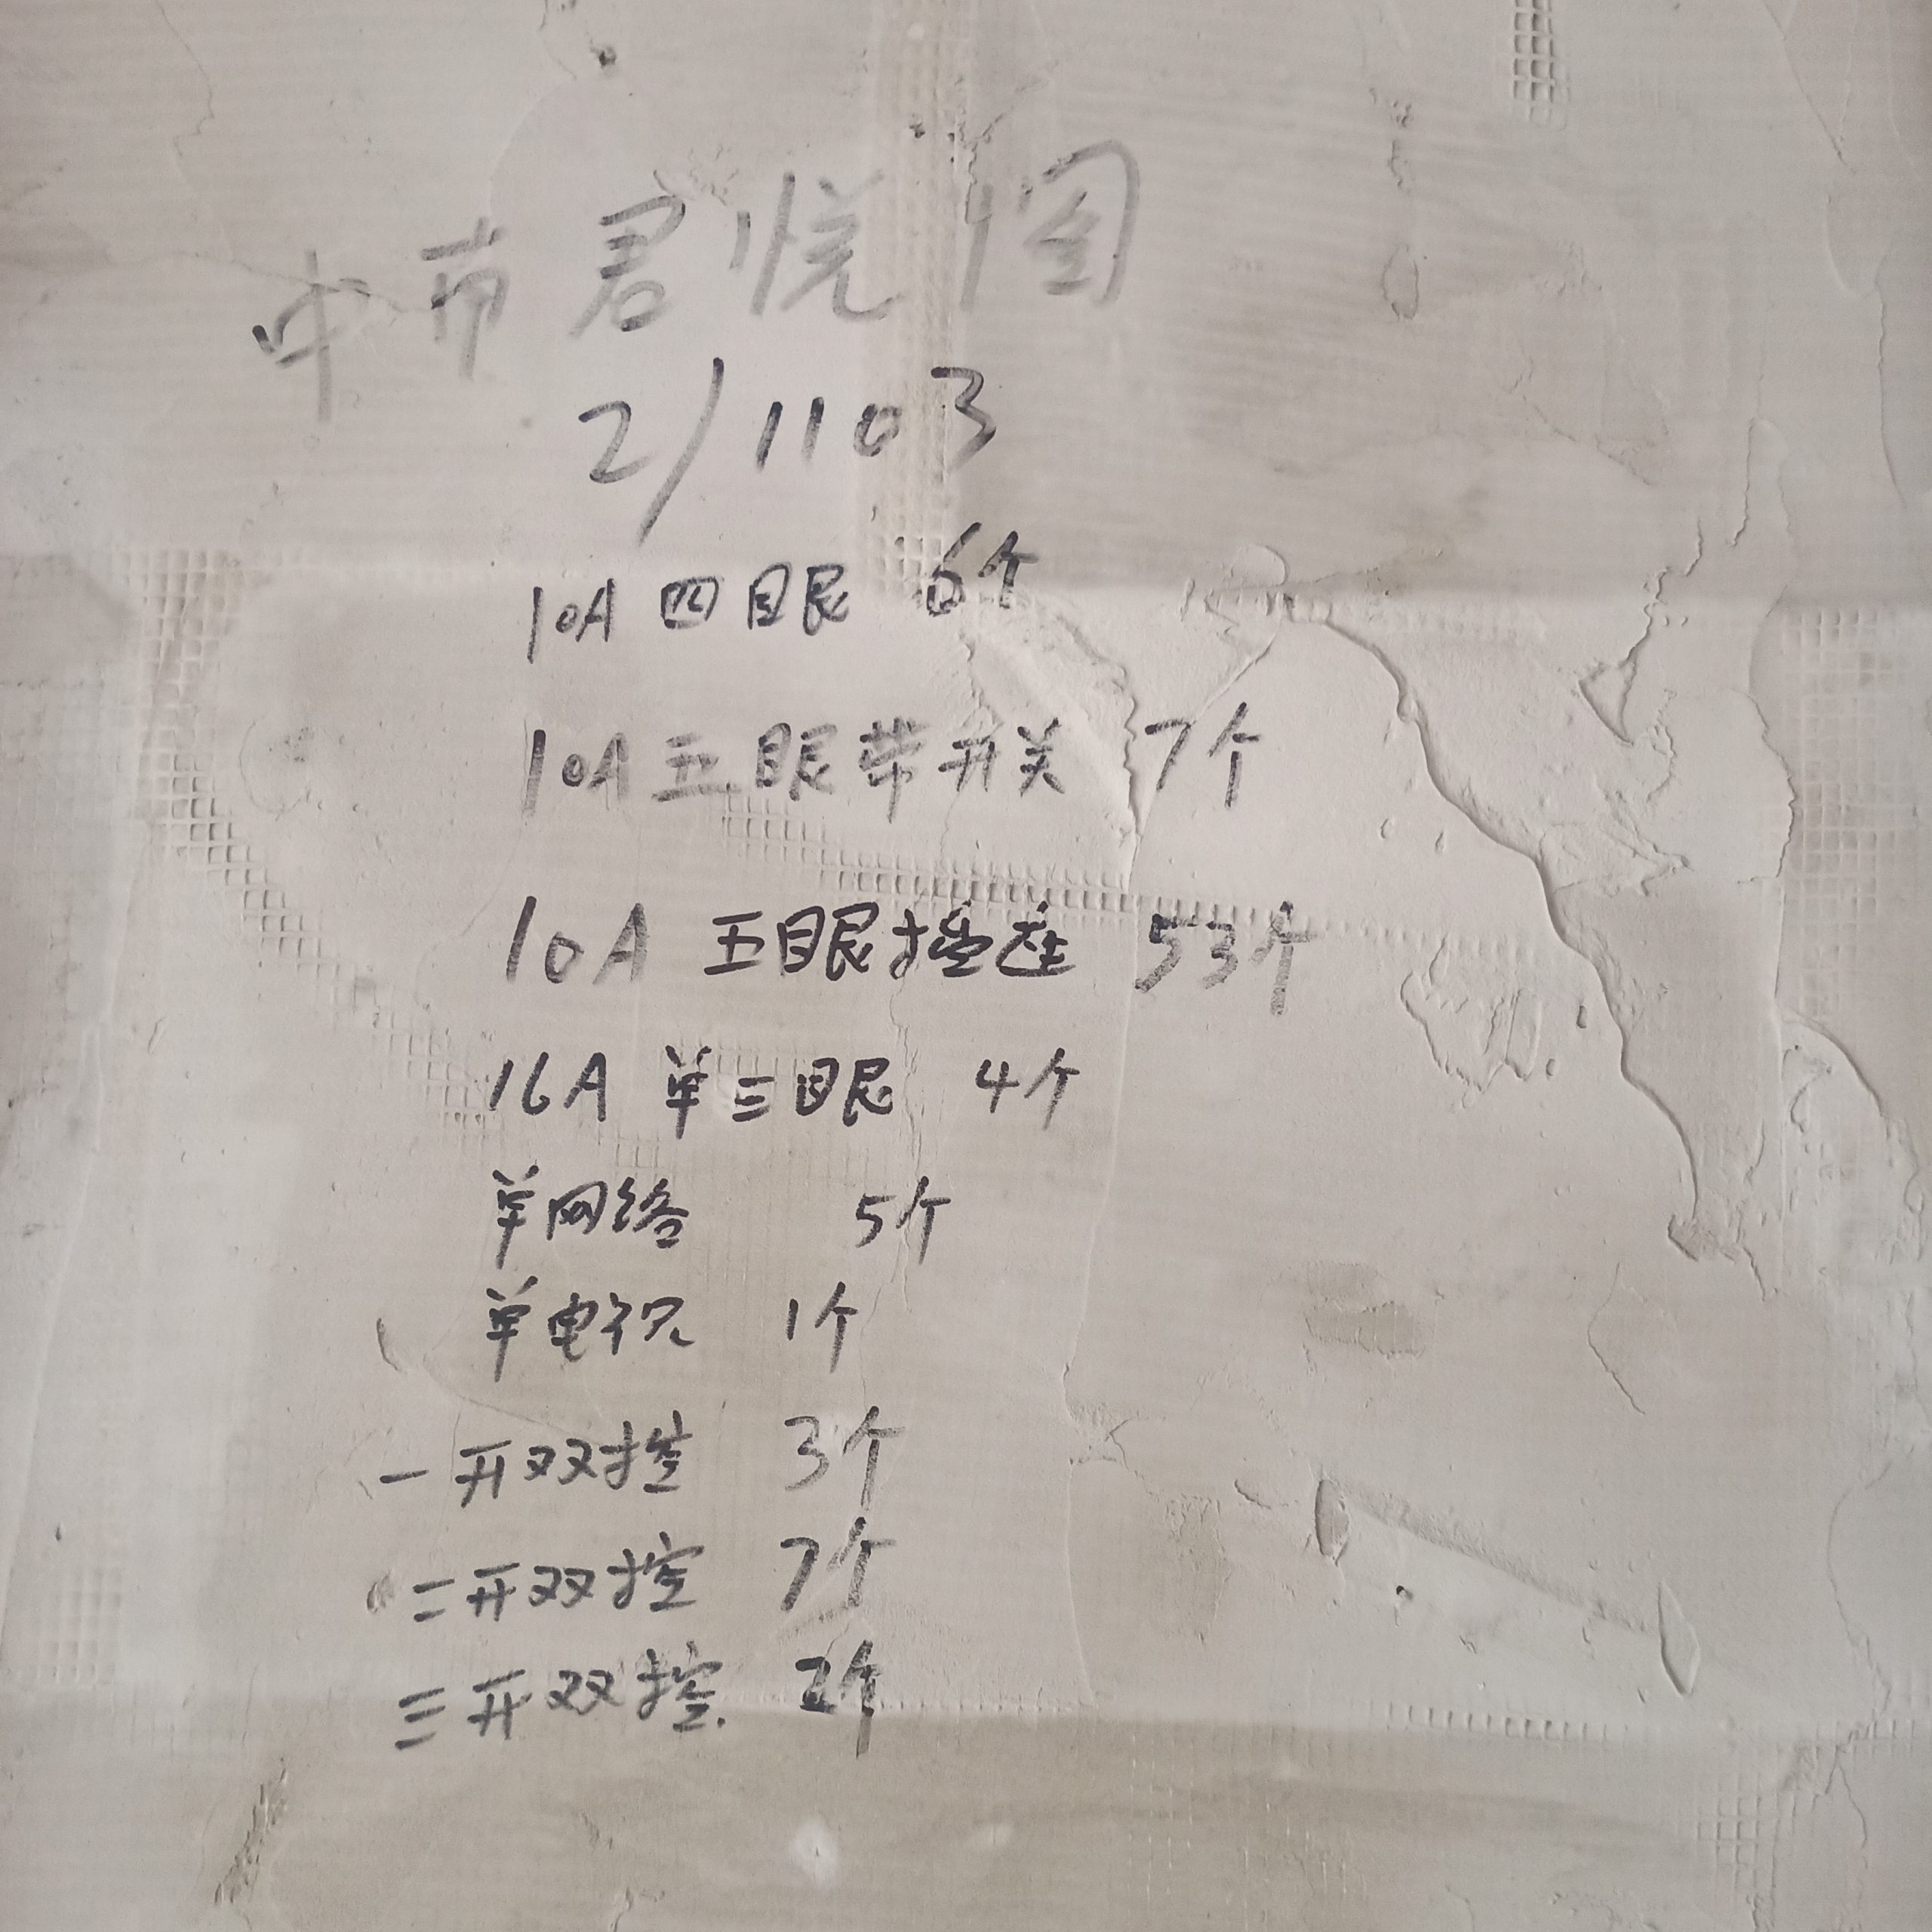 中市君悦图
2/1103
10A 四眼 6个
10A 五眼带开关 7个
10A 五眼插座 53个
16A 单三眼 4个
单网络 5个
单电视 1个
一开双控 3个
二开双控 7个
三开双控 2个